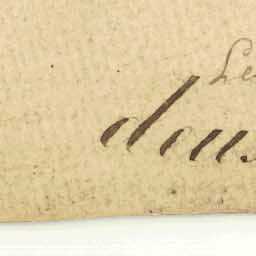 Le
dous